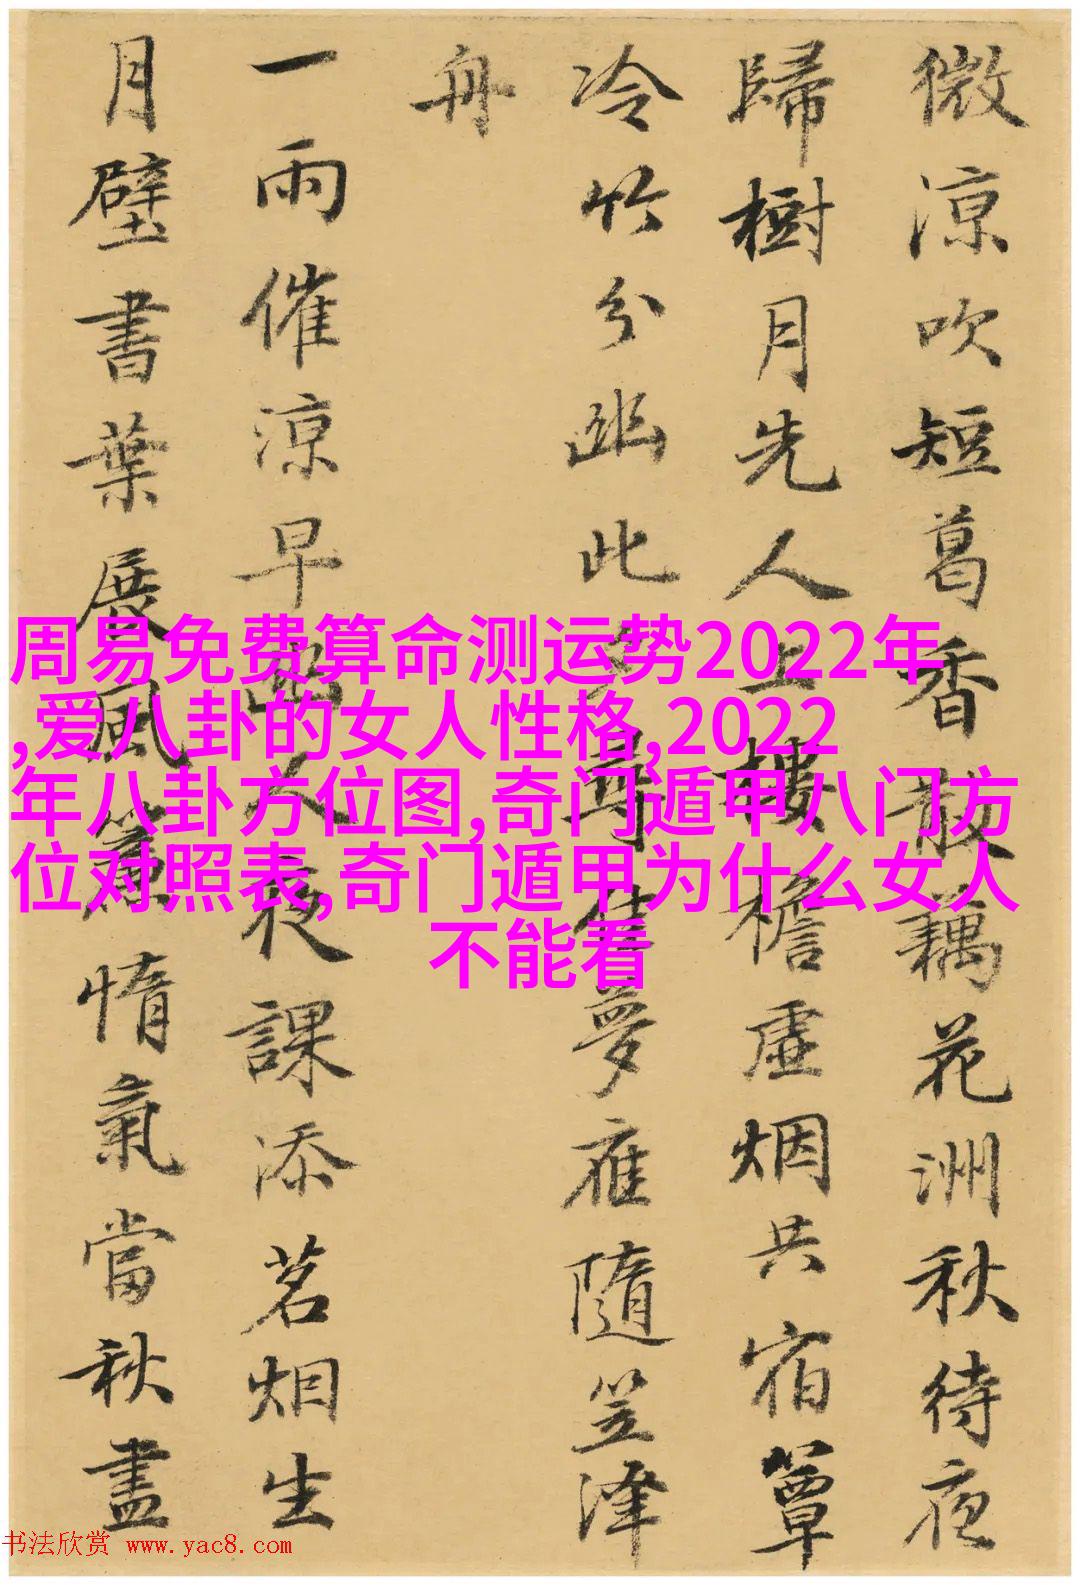 微涼吹短葛香散藕花洲秋待夜
歸樹月先人上樓檐虛烟共宿簟
冷竹分幽此尋佳夢雁隨笠澤
舟
一雨催涼早幽人夜課添茗烟生
月壁書葉展風簾惰氣當秋盡
周易免费算命测运势2022年
,爱八卦的女人性格,2022
年八卦方位图,奇门遁甲八门方
位对照表,奇门遁甲为什么女人
不能看
书法欣赏 www.yac8.com